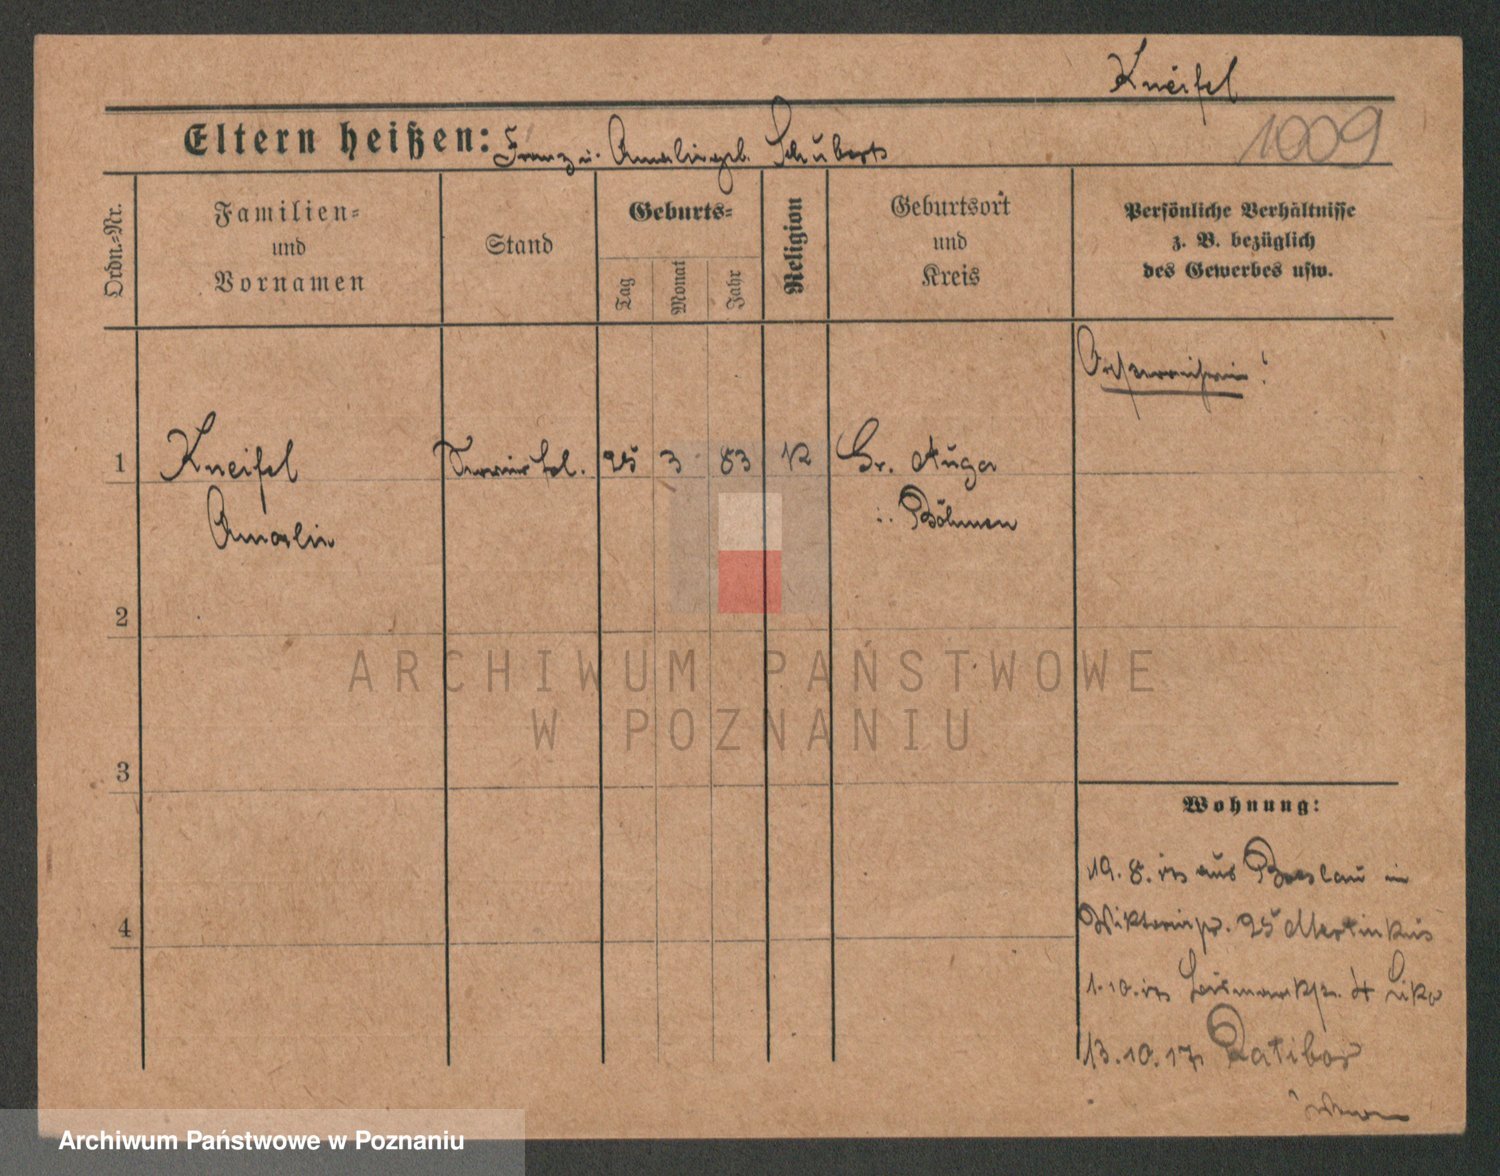 Kneifel
Eltern heißen: Franz u. Amalie geb. Schubert
1009
Ordn.-Nr.
Familien-
und
Vornamen
Stand
Geburts-
Tag
Monat
Jahr
Religion
Geburtsort
und
Kreis
Persönliche Verhältnisse
z. B. bezüglich
des Gewerbes usw.
Österreicherin!
1 Kneifel Servierfrl. 25 3 83 K Gr. Auga
Amalie i. Böhmen
2
3
4
ARCHIWUM PAŃSTWOWE
W POZNANIU
Wohnung:
19. 8. aus Breslau in
Viktoriastr. 25
1.10. 4
13.10.17 Ratibor
Archiwum Państwowe w Poznaniu